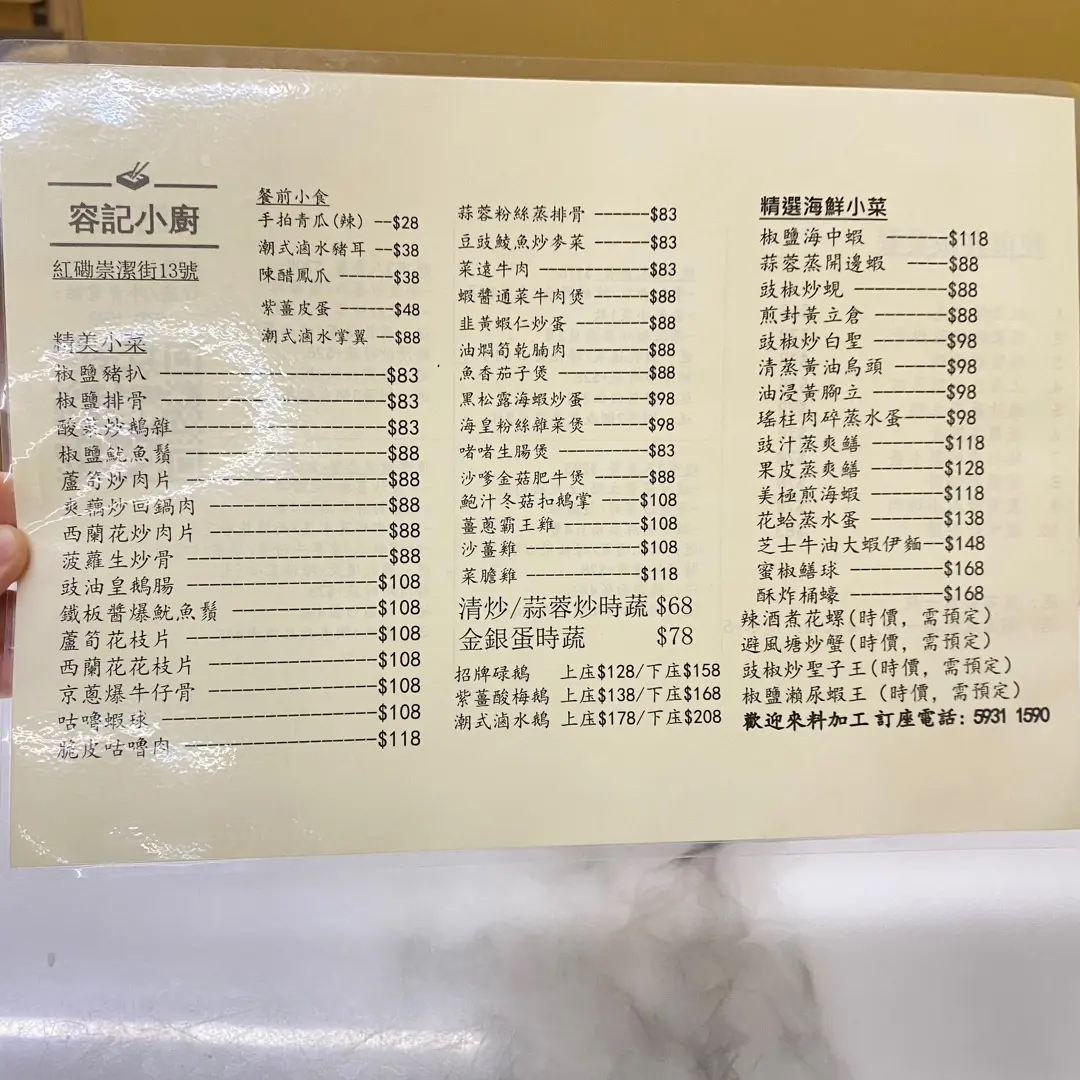 容記小廚
紅磡崇潔街13號
餐前小食
手拍青瓜(辣) --$28
潮式滷水豬耳 --$38
陳醋鳳爪 ------$38
紫薑皮蛋 ------$48
潮式滷水掌翼 --$88
精美小菜
椒鹽豬扒 --------------------$83
椒鹽排骨 --------------------$83
酸菜炒鵝雜 ------------------$83
椒鹽魷魚鬚 ------------------$88
蘆筍炒肉片 ------------------$88
爽藕炒回鍋肉 ----------------$88
西蘭花炒肉片 ----------------$88
菠蘿生炒骨 ------------------$88
豉油皇鵝腸 ----------------$108
鐵板醬爆魷魚鬚 ------------$108
蘆筍花枝片 ----------------$108
西蘭花花枝片 --------------$108
京蔥爆牛仔骨 --------------$108
咕嚕蝦球 ------------------$108
脆皮咕嚕肉 ----------------$118
蒜蓉粉絲蒸排骨 ------$83
豆豉鯪魚炒麥菜 ------$83
菜遠牛肉 ------------$83
蝦醬通菜牛肉煲 ------$88
韭黃蝦仁炒蛋 --------$88
油燜筍乾腩肉 --------$88
魚香茄子煲 ----------$88
黑松露海蝦炒蛋 ------$98
海皇粉絲雜菜煲 ------$98
啫啫生腸煲 ----------$83
沙嗲金菇肥牛煲 ------$88
鮑汁冬菇扣鵝掌 ----$108
薑蔥霸王雞 --------$108
沙薑雞 ------------$108
菜膽雞 ------------$118
清炒/蒜蓉炒時蔬 $68
金銀蛋時蔬 $78
招牌碌鵝 上庄$128/下庄$158
紫薑酸梅鵝 上庄$138/下庄$168
潮式滷水鵝 上庄$178/下庄$208
精選海鮮小菜
椒鹽海中蝦 ------$118
蒜蓉蒸開邊蝦 ----$88
豉椒炒蜆 --------$88
煎封黃立倉 ------$88
豉椒炒白聖 ------$98
清蒸黃油烏頭 ----$98
油浸黃腳立 ------$98
瑤柱肉碎蒸水蛋 --$98
豉汁蒸爽鱔 ------$118
果皮蒸爽鱔 ------$128
美極煎海蝦 ------$118
花蛤蒸水蛋 ------$138
芝士牛油大蝦伊麵--$148
蜜椒鱔球 --------$168
酥炸桶蠔 --------$168
辣酒煮花螺(時價, 需預定)
避風塘炒蟹(時價, 需預定)
豉椒炒聖子王(時價, 需預定)
椒鹽瀨尿蝦王 (時價, 需預定)
歡迎來料加工 訂座電話: 5931 1590